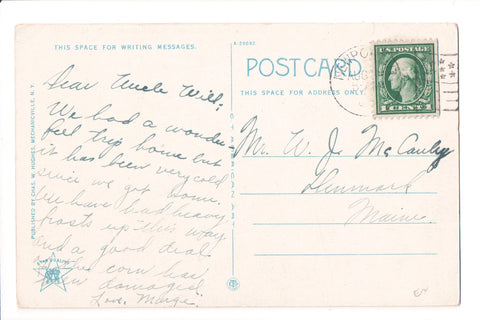 THIS SPACE FOR WRITING MESSAGES.
A-29042
POST CARD
THIS SPACE FOR ADDRESS ONLY.
U.S. POSTAGE
1 CENT 1
PUBLISHED BY CHAS. W. HUGHES, MECHANICVILLE, N.Y.
Dear Uncle Will:
We had a wonder-
ful trip home but
it has been very cold
since we got home.
We have had heavy
frosts up this way
and a good deal
corn has
been damaged.
Love, Marge.
Mr. W. J. McCauley
Denmark
Maine.